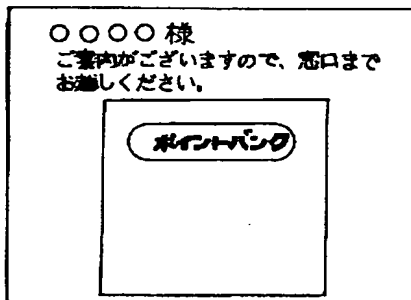 ○○○○様
ご案内がございますので、窓口まで
お越しください。
ポイントバンク